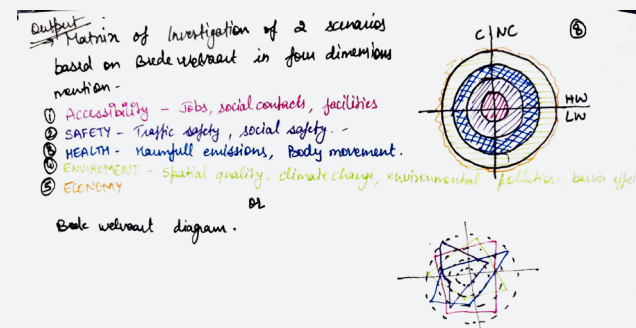 Output
Matrix of Investigation of 2 scenarios
based on Brede welvaart in four dimensions
mention -
① Accessibility - Jobs, social contacts, facilities
② SAFETY - Traffic safety, social safety. -
③ HEALTH - Harmfull emissions, Body movement.
④ ENVIROMENT - spatial quality, climate change, environmental pollution,
⑤ ECONOMY
or
Brede welvaart diagram.
C | NC
⑧
HW
LW